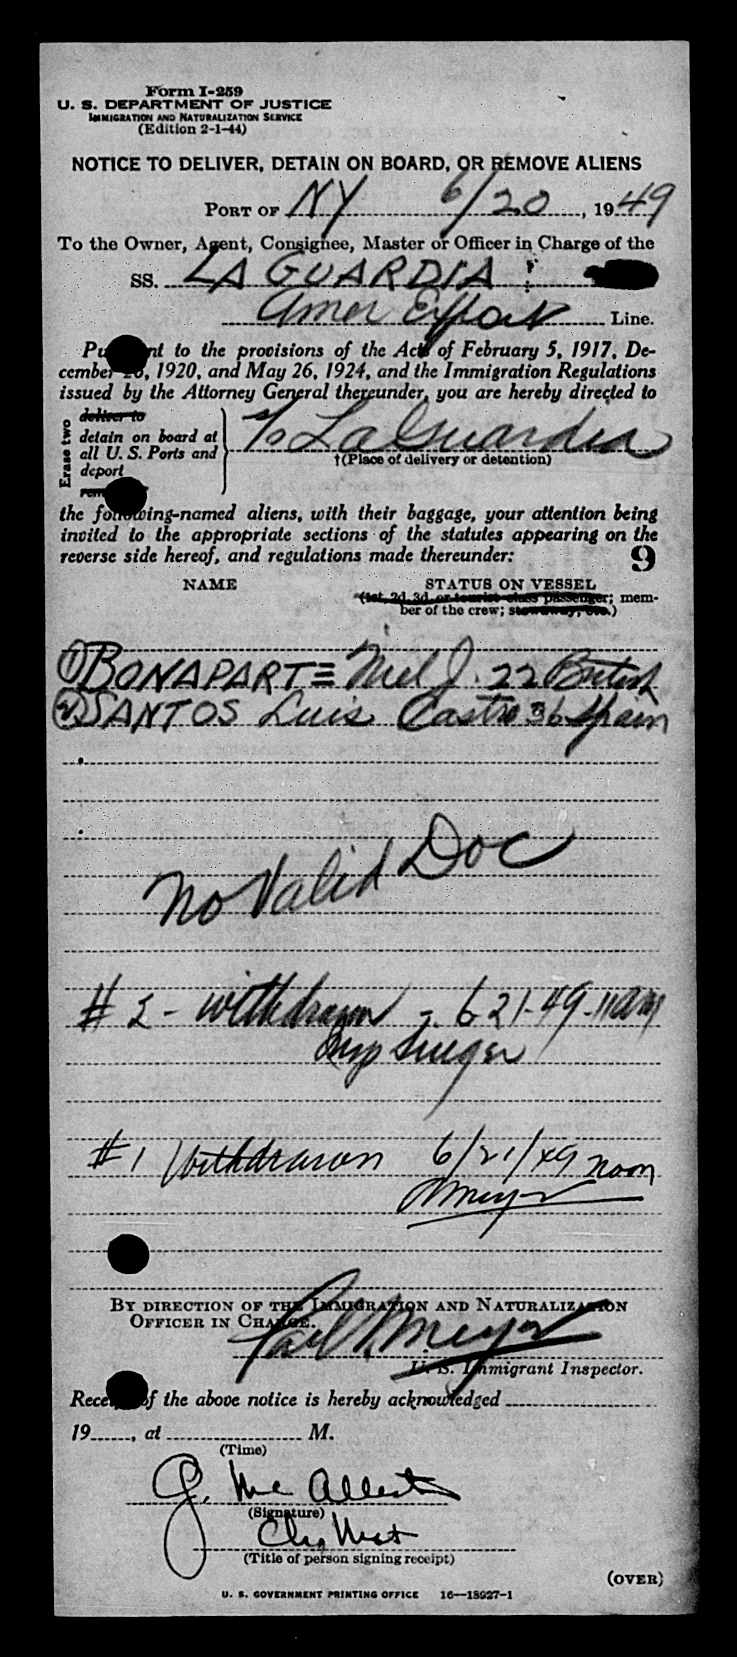 Form I-259
U. S. DEPARTMENT OF JUSTICE
IMMIGRATION AND NATURALIZATION SERVICE
(Edition 2-1-44)
NOTICE TO DELIVER, DETAIN ON BOARD, OR REMOVE ALIENS
PORT OF NY 6/20, 1949
To the Owner, Agent, Consignee, Master or Officer in Charge of the
SS. LA GUARDIA
Amer Export Line.
Pursuant to the provisions of the Acts of February 5, 1917, De-
cember 26, 1920, and May 26, 1924, and the Immigration Regulations
issued by the Attorney General thereunder, you are hereby directed to
Erase two
deliver to
detain on board at
all U. S. Ports and
deport
S/S LaGuardia
†(Place of delivery or detention)
the following-named aliens, with their baggage, your attention being
invited to the appropriate sections of the statutes appearing on the
reverse side hereof, and regulations made thereunder: 9
NAME STATUS ON VESSEL
(1st, 2d, 3d, or tourist class passenger; mem-
ber of the crew; stowaway, etc.)
(1) BONAPARTE 22 British
(2) SANTOS Luis Castro 36 Spain
No Valid Doc
#2 - withdrawn - 6 21-49-11am
Insp
#1 Withdrawn 6/21/49 noon
Meyer
BY DIRECTION OF THE IMMIGRATION AND NATURALIZATION
OFFICER IN CHARGE.
Meyer
U. S. Immigrant Inspector.
Receipt of the above notice is hereby acknowledged
19, at M.
(Time)
(Signature)
(Title of person signing receipt)
(OVER)
U. S. GOVERNMENT PRINTING OFFICE 16—18927-1